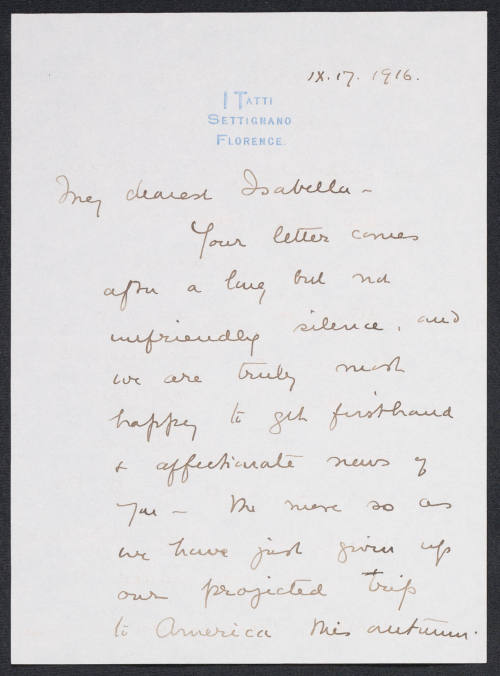 IX.17. 1916.
I TATTI
SETTIGNANO
FLORENCE.
My dearest Isabella -
Your letter comes
after a long but not
unfriendly silence, and
we are truly most
happy to get firsthand
& affectionate news of
you - the more so as
we have just given up
our projected trip
to America this autumn.